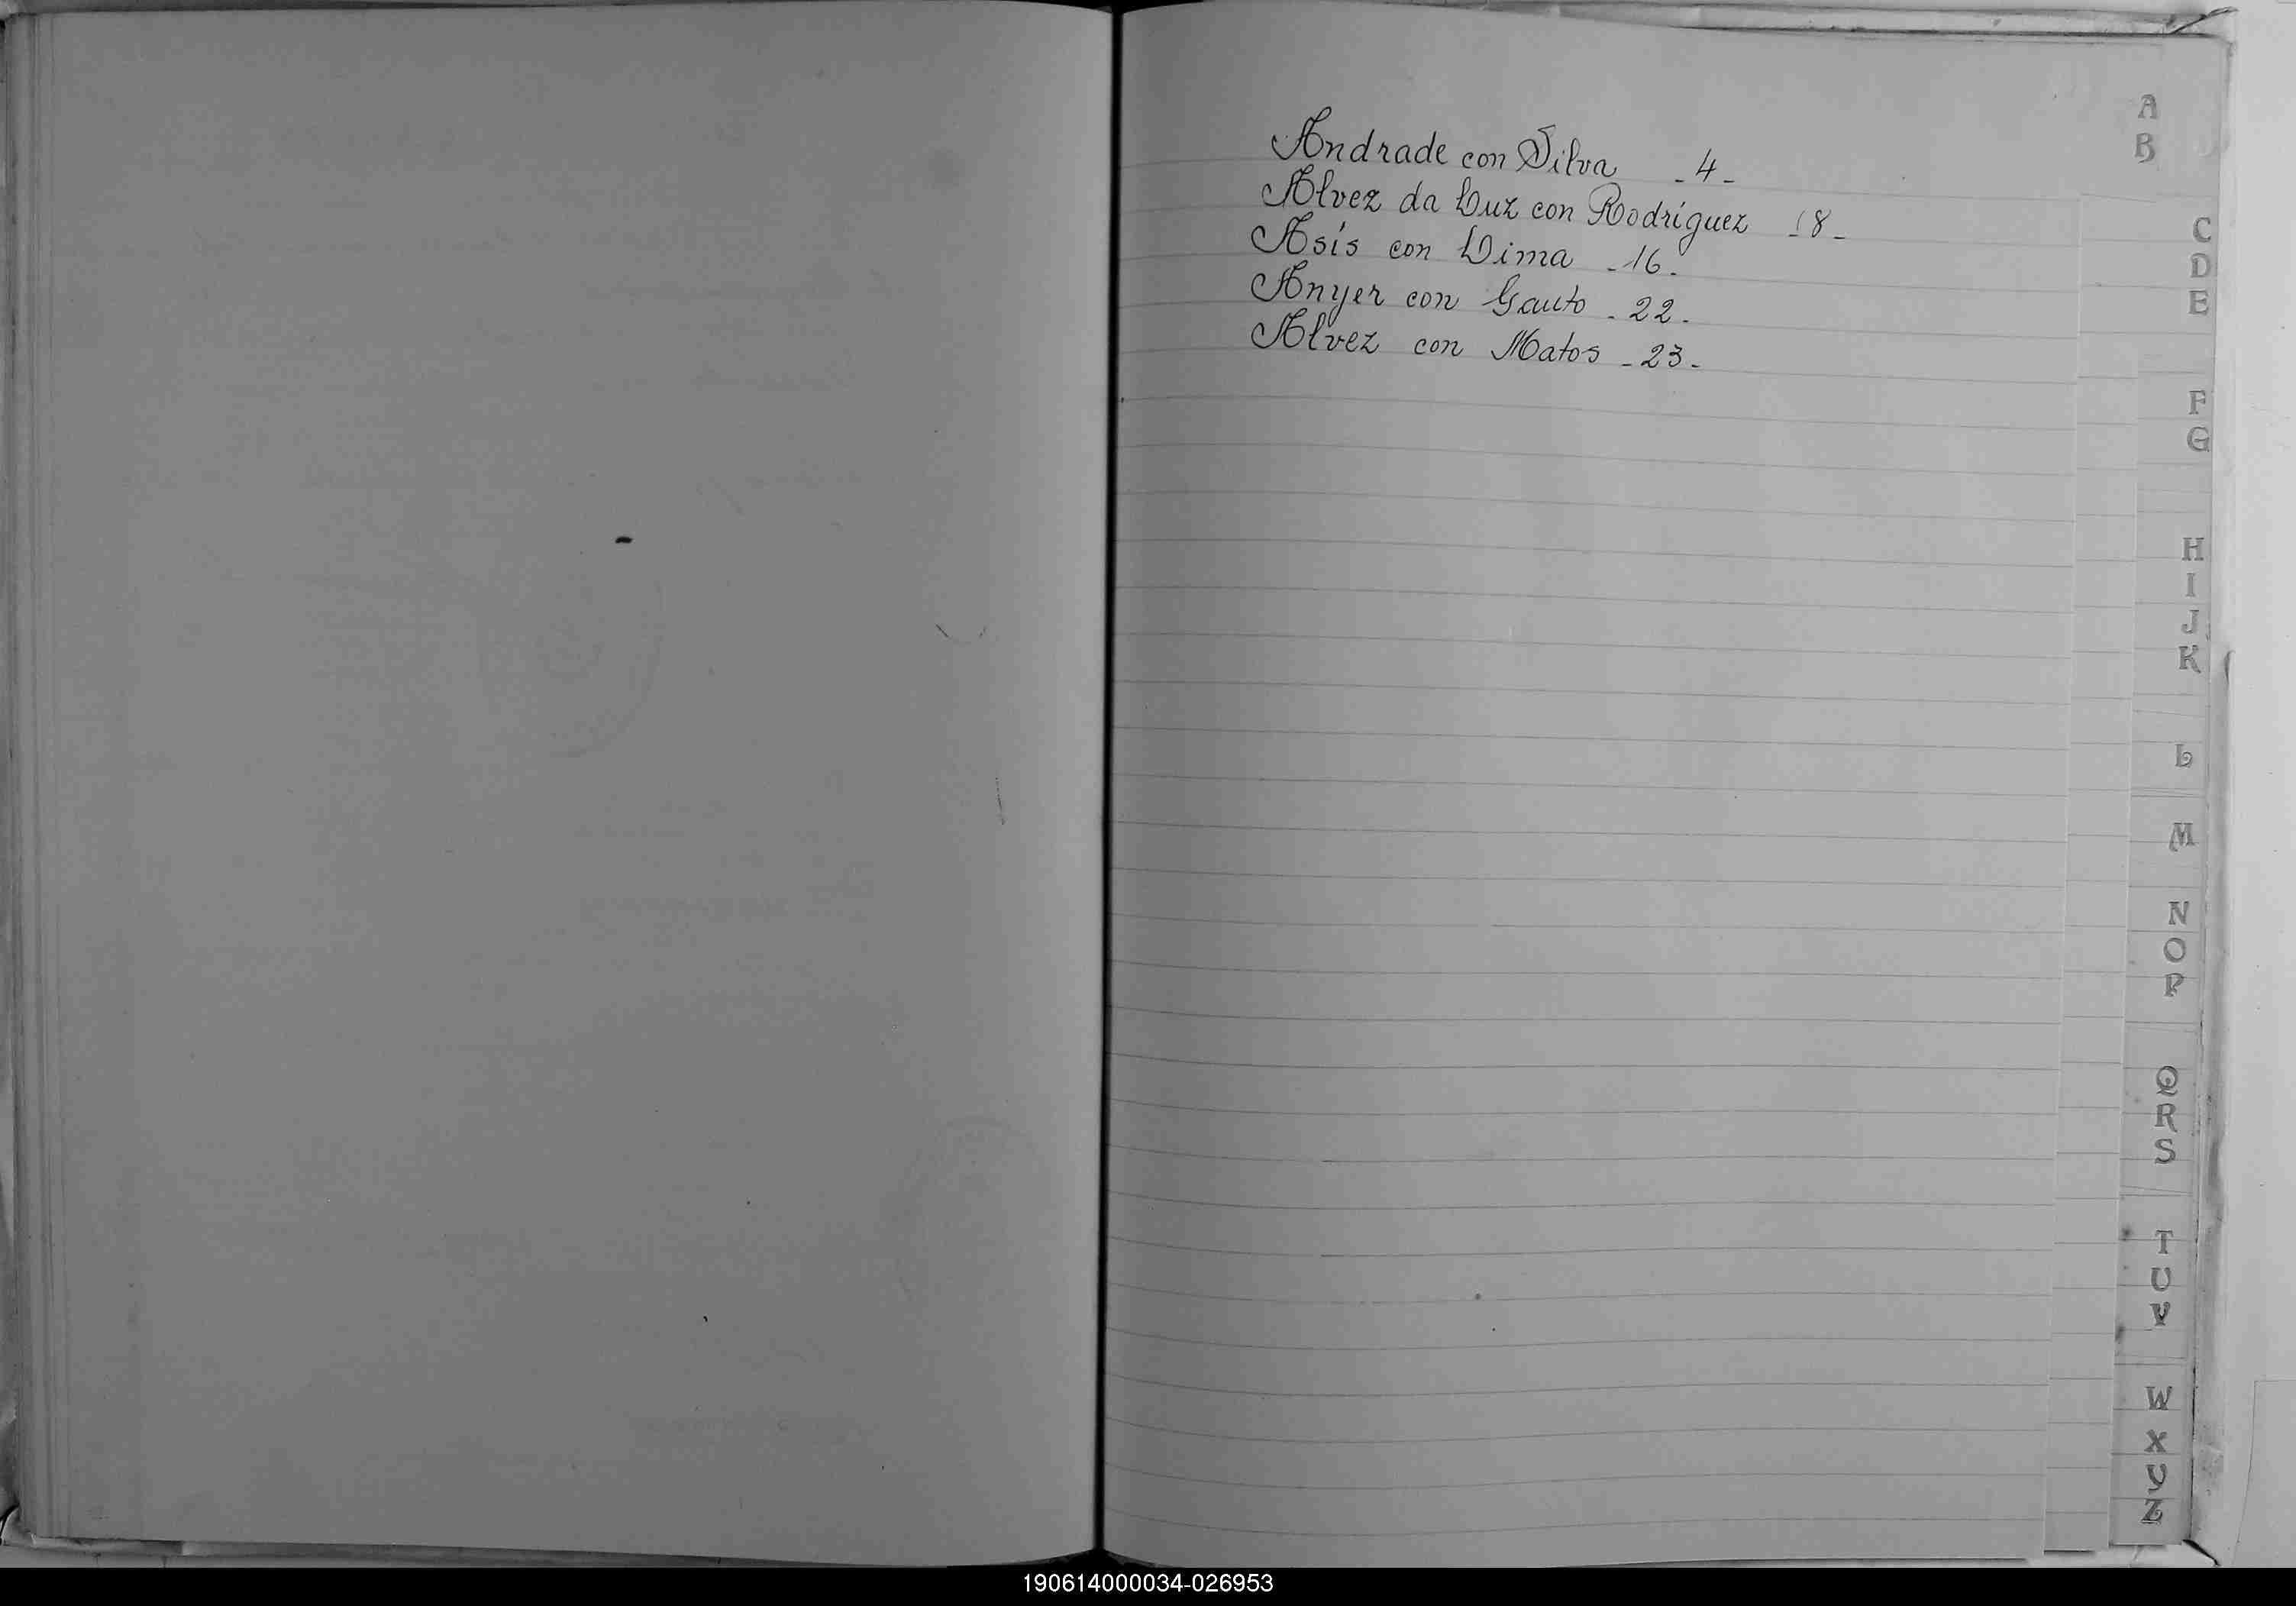 Andrade con Silva - 4 -
Alvez da Luz con Rodríguez 18 -
Asís con Lima - 16.
Anyer con Gauto - 22 -
Alvez con Matos - 23 -
A
B
C
D
E
F
G
H
I
J
K
L
M
N
O
P
Q
R
S
T
U
V
W
X
Y
Z
190614000034-026953